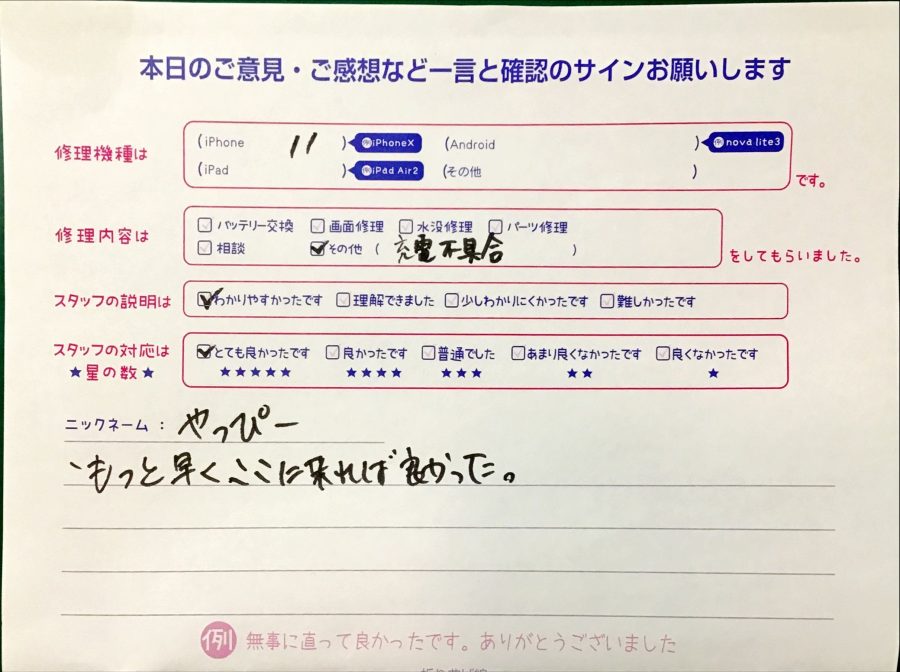 本日のご意見・ご感想など一言と確認のサインお願いします
修理機種は
(iPhone 11 ) 例iPhoneX (Android ) 例nova lite3
(iPad ) 例iPad Air2 (その他 ) です。
修理内容は
バッテリー交換 画面修理 水没修理 パーツ修理
相談 その他 ( 充電不具合 ) をしてもらいました。
スタッフの説明は わかりやすかったです 理解できました 少しわかりにくかったです 難しかったです
スタッフの対応は とても良かったです 良かったです 普通でした あまり良くなかったです 良くなかったです
★星の数★ ★★★★★ ★★★★ ★★★ ★★ ★
ニックネーム: やっぴー
・もっと早くここに来れば良かった。
例 無事に直って良かったです。ありがとうございました